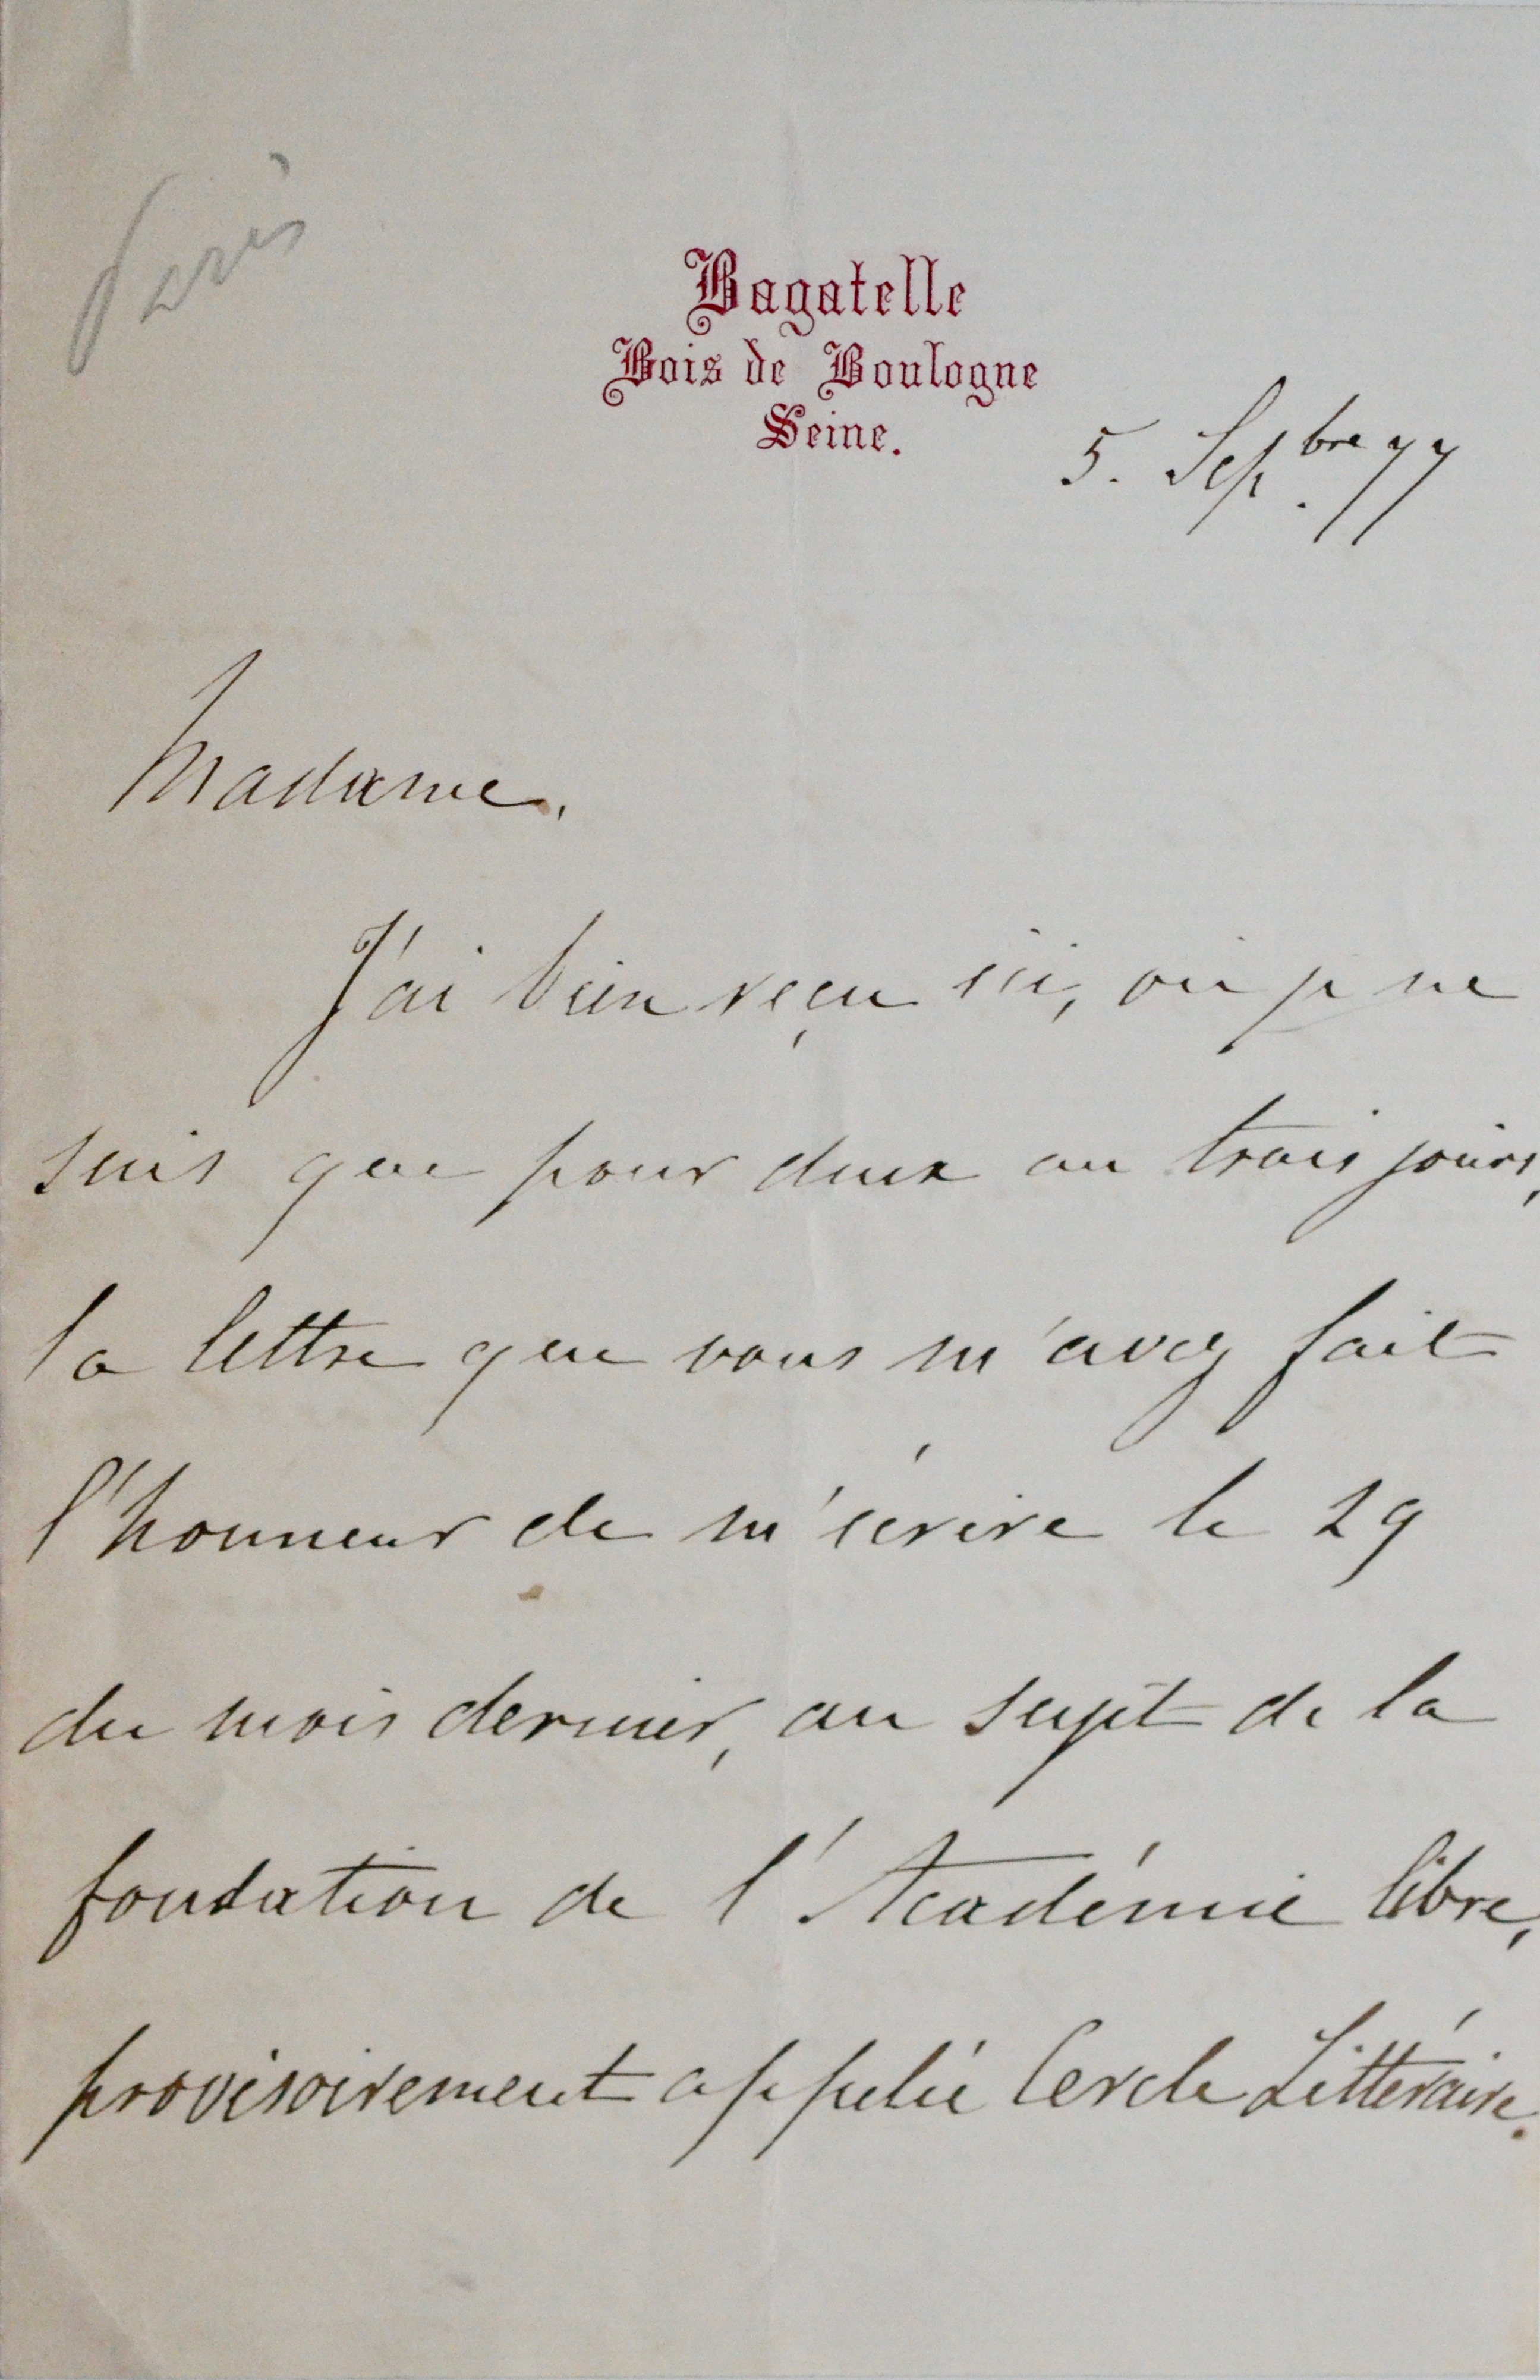 Paris
Bagatelle
Bois de Boulogne
Seine.
5. Sept.bre 77
Madame,
J'ai bien reçu ici, où je ne
suis que pour deux ou trois jours,
la lettre que vous m'avez fait
l'honneur de m'écrire le 29
du mois dernier, au sujet de la
fondation de l'Académie libre,
provisoirement appelée Cercle Littéraire.